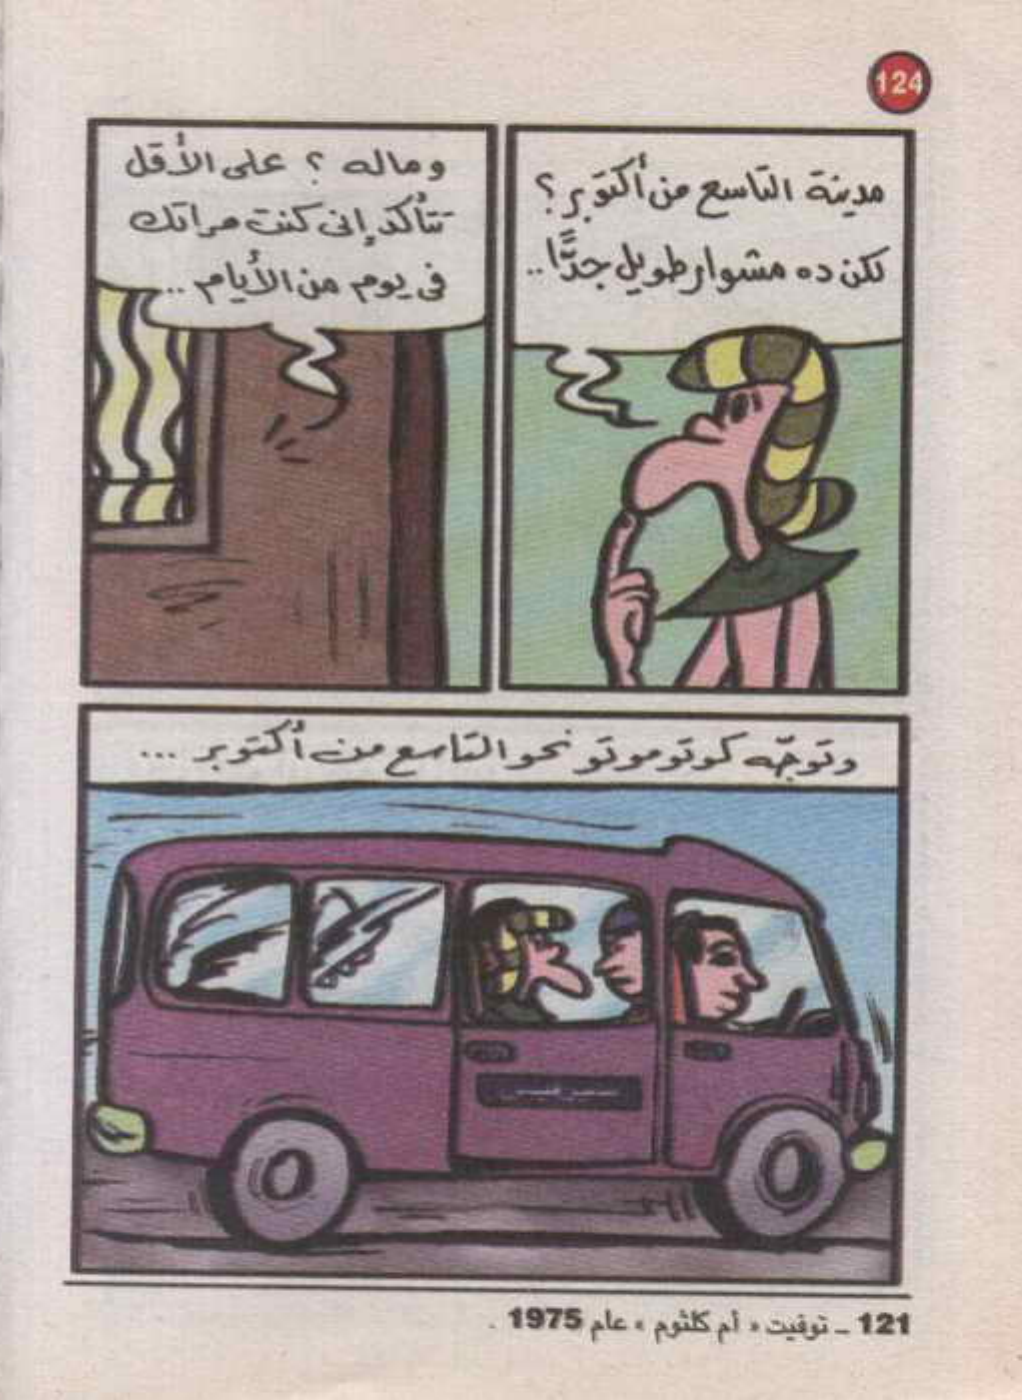 124
مدينة التاسع من أكتوبر؟
لكن ده مشوار طويل جدًّا..
وماله ؟ على الأقل
تتأكد إنى كنت مراتك
فى يوم من الأيام ..
وتوجّه كوتوموتو نحو التاسع من أكتوبر ...
121 - توفيت « أم كلثوم » عام 1975 .